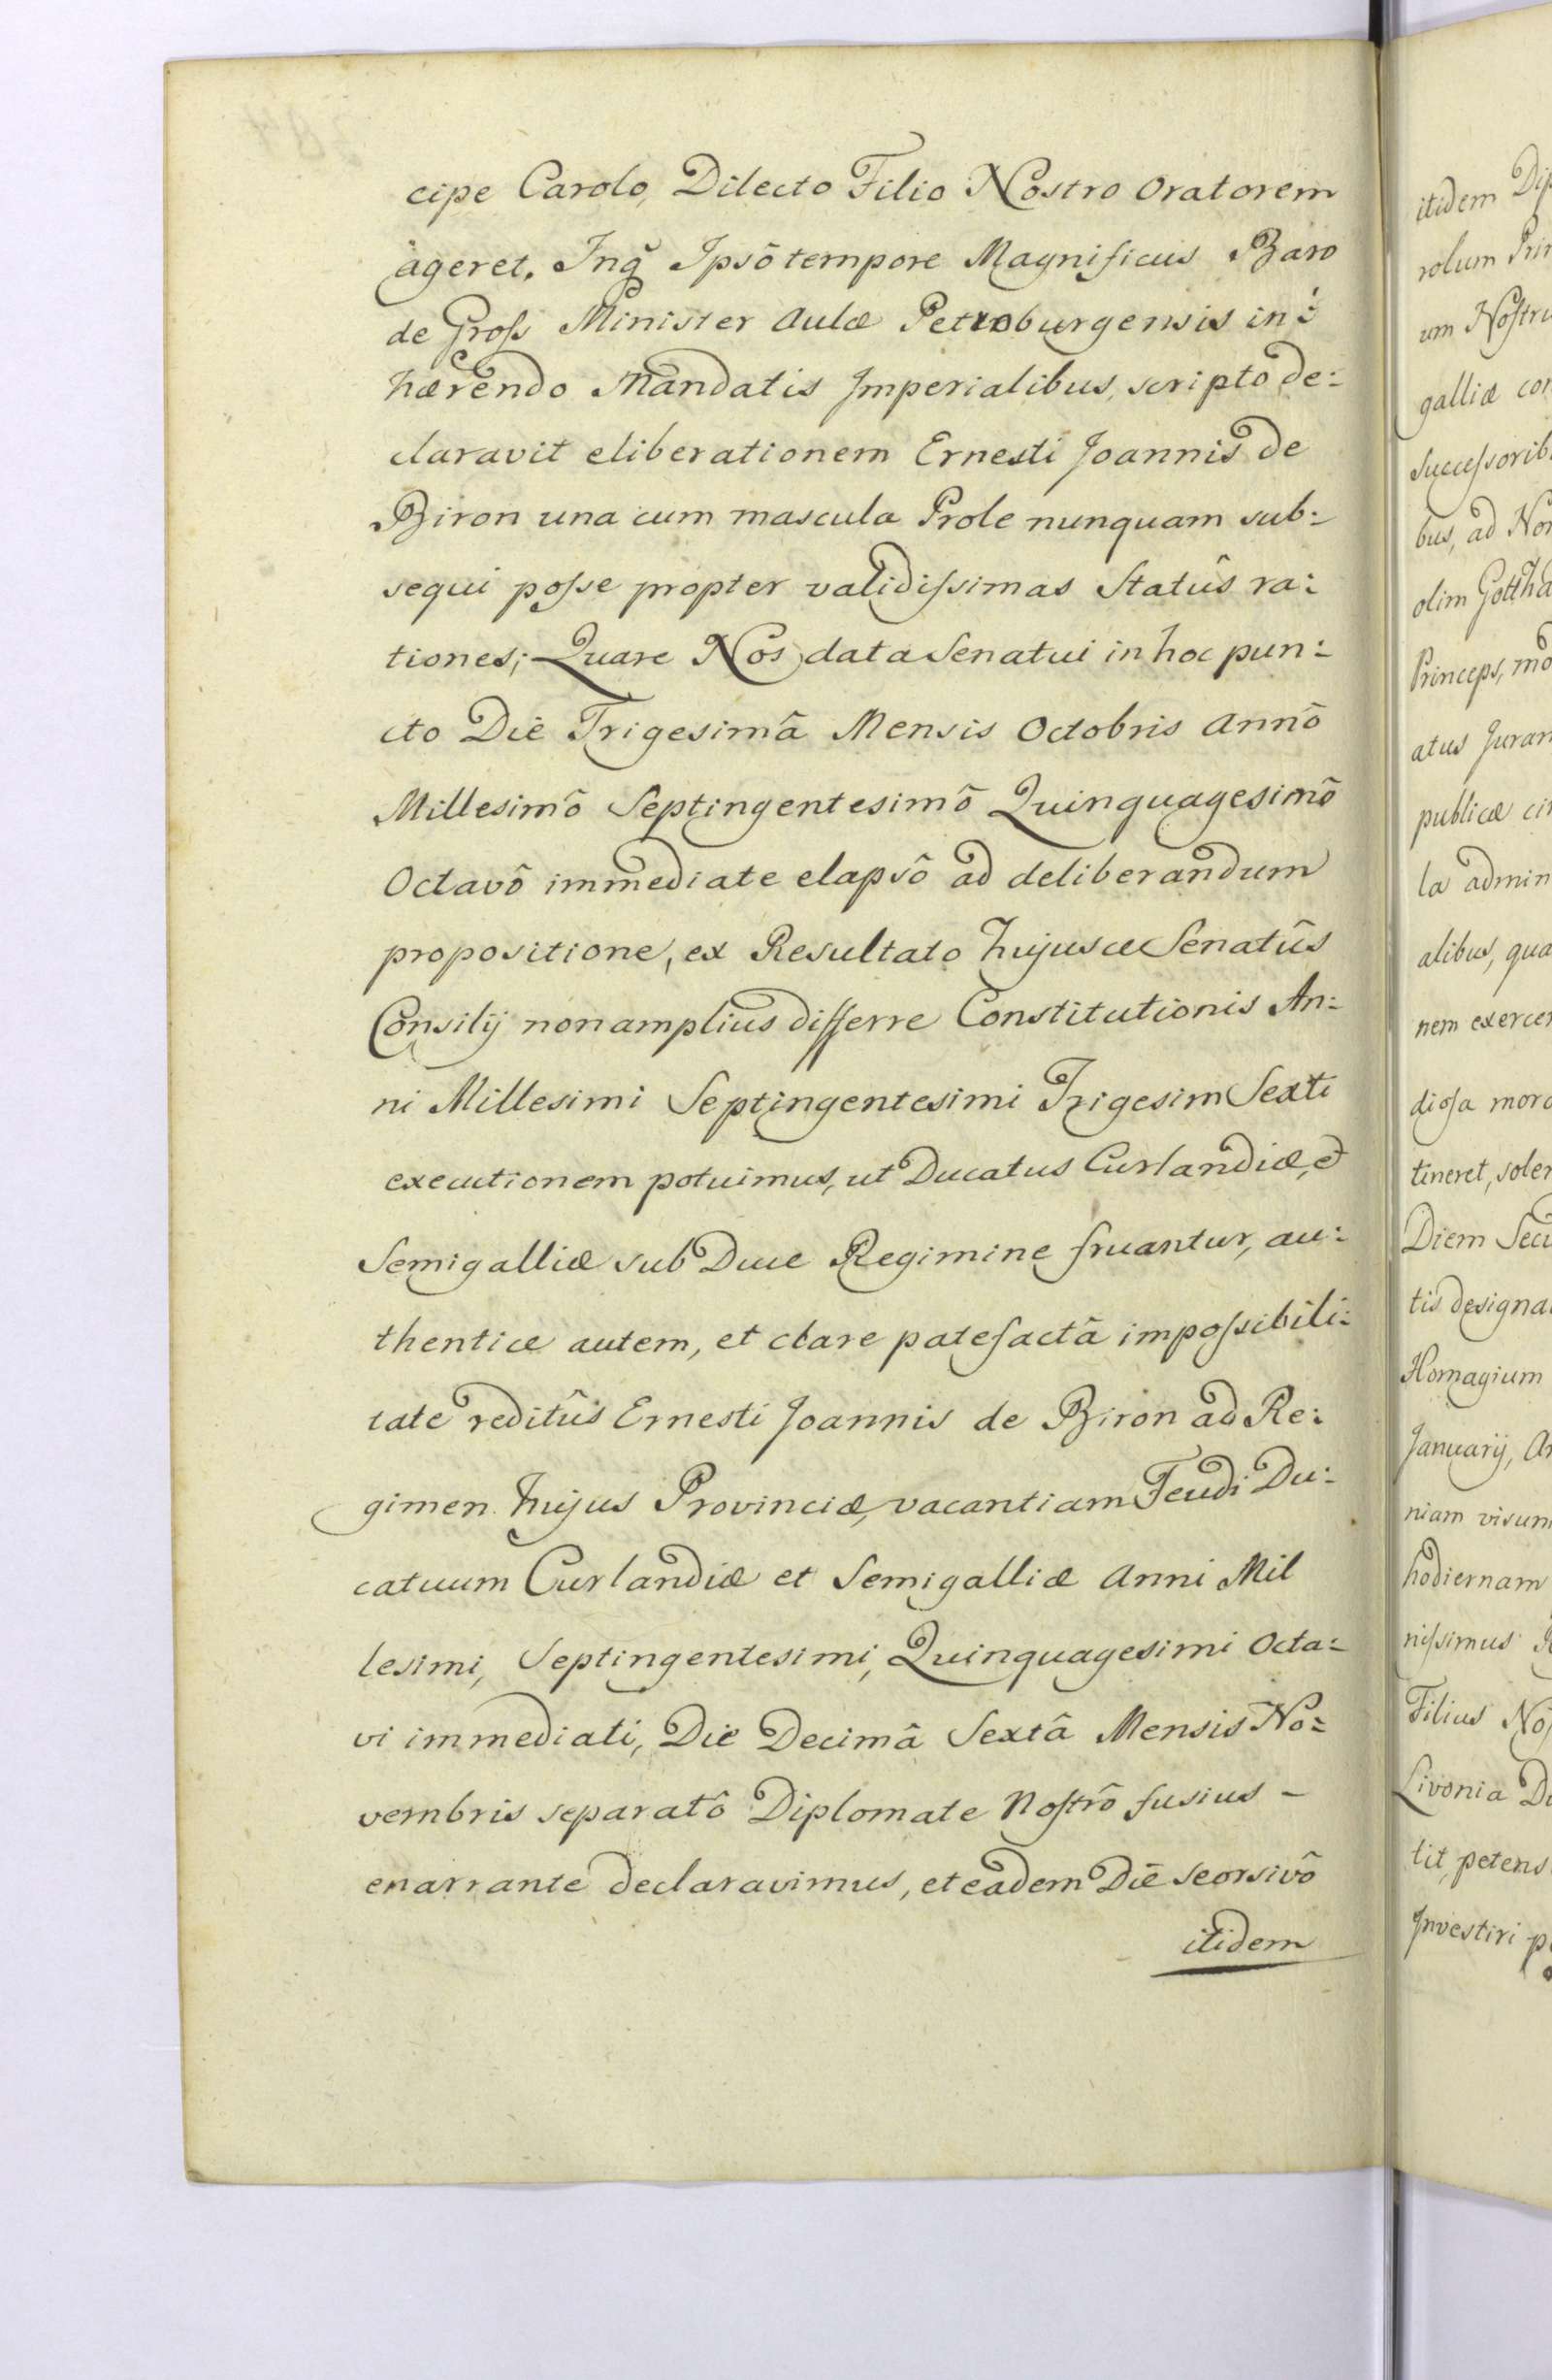 cipe Carolo, Dilecto Filio Nostro Oratorem
ageret. Inq̃ Ipsô tempore Magnificus Baro
de Groſs Minister Aulæ Petroburgensis in:
hærendo Mandatis Imperialibus, scripto de:
claravit eliberationem Ernesti Joannis de
Biron una cum mascula Prole nunquam sub:
sequi poſse propter validiſsimas Statûs ra:
tiones; Quare Nos data Senatui in hoc pun:
cto Die Trigesimâ Mensis Octobris Annô
Millesimô Septingentesimô Quinquagesimô
Octavô immediate elapsô ad deliberandum
propositione, ex Resultato hujusce Senatûs
Consilij non amplius differre Constitutionis An:
ni Millesimi Septingentesimi Trigesim Sexti
executionem potuimus, ut Ducatus Curlandiæ, et
Semigalliæ sub Duce Regimine fruantur, au:
thentice autem, et clare patefactâ impoſsibili:
tate reditûs Ernesti Joannis de Biron ad Re:
gimen hujus Provinciæ, vacantiam Feudi Du:
catuum Curlandiæ et Semigalliæ Anni Mil
lesimi, Septingentesimi, Quinquagesimi Octa:
vi immediati, Die Decimâ Sextâ Mensis No:
vembris separatô Diplomate Noſtrô fusius -
enarrante declaravimus, et eadem Diê seorsivô
itidem
itidem Dip
rolum Prin
um Noſtru
galliæ con
Succeſsorib
bus, ad Nor
olim Gottha
Princeps, mo
atus Juram
publicæ cir
la admin
alibus, qua
nem exercer
dioſa mora
tineret, solen
Diem Secu
tis designa
Homagium
Januarij, An
niam visum
hodiernam
niſsimus
Filius Noſ
Livonia Du
tit, petens
Investiri p